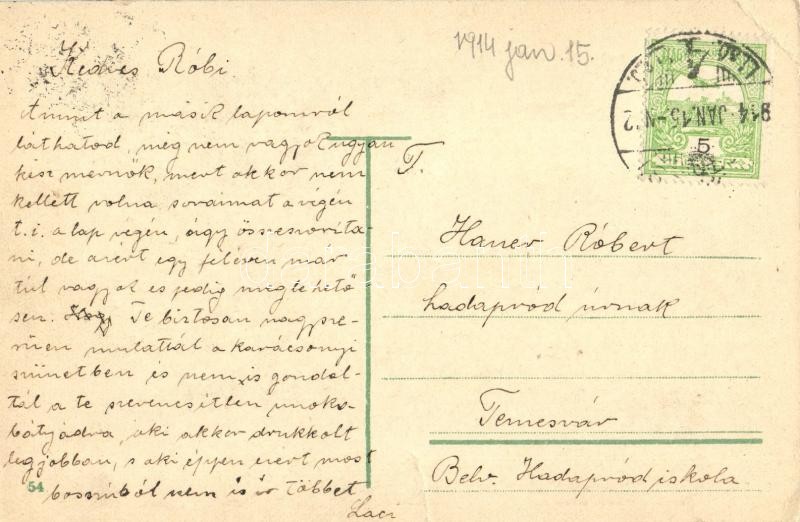 1914 jan. 15.
Kedves Róbi.
Amint a másik lapomról
láthatod, még nem vagyok ugyan
kész mérnök, mert akkor nem
kellett volna soraimat a végén
t. i. a lap végén, úgy összeszoríta-
ni, de azért egy féléven már
túl vagyok és pedig megtehető
sen. Te biztosan nagysze-
rűen mulattál a karácsonyi
szünetben és nem is gondol-
tál a te szerencsétlen unoka-
bátyádra, aki akkor drukkolt
legjobban, s aki éppen ezért most
bosszúból nem is ír többet
Laci
54
T.
Hauer Róbert
hadapród úrnak
Temesvár
Belv. Hadapród iskola.
914 JAN. 15-N 12
5
darabanth